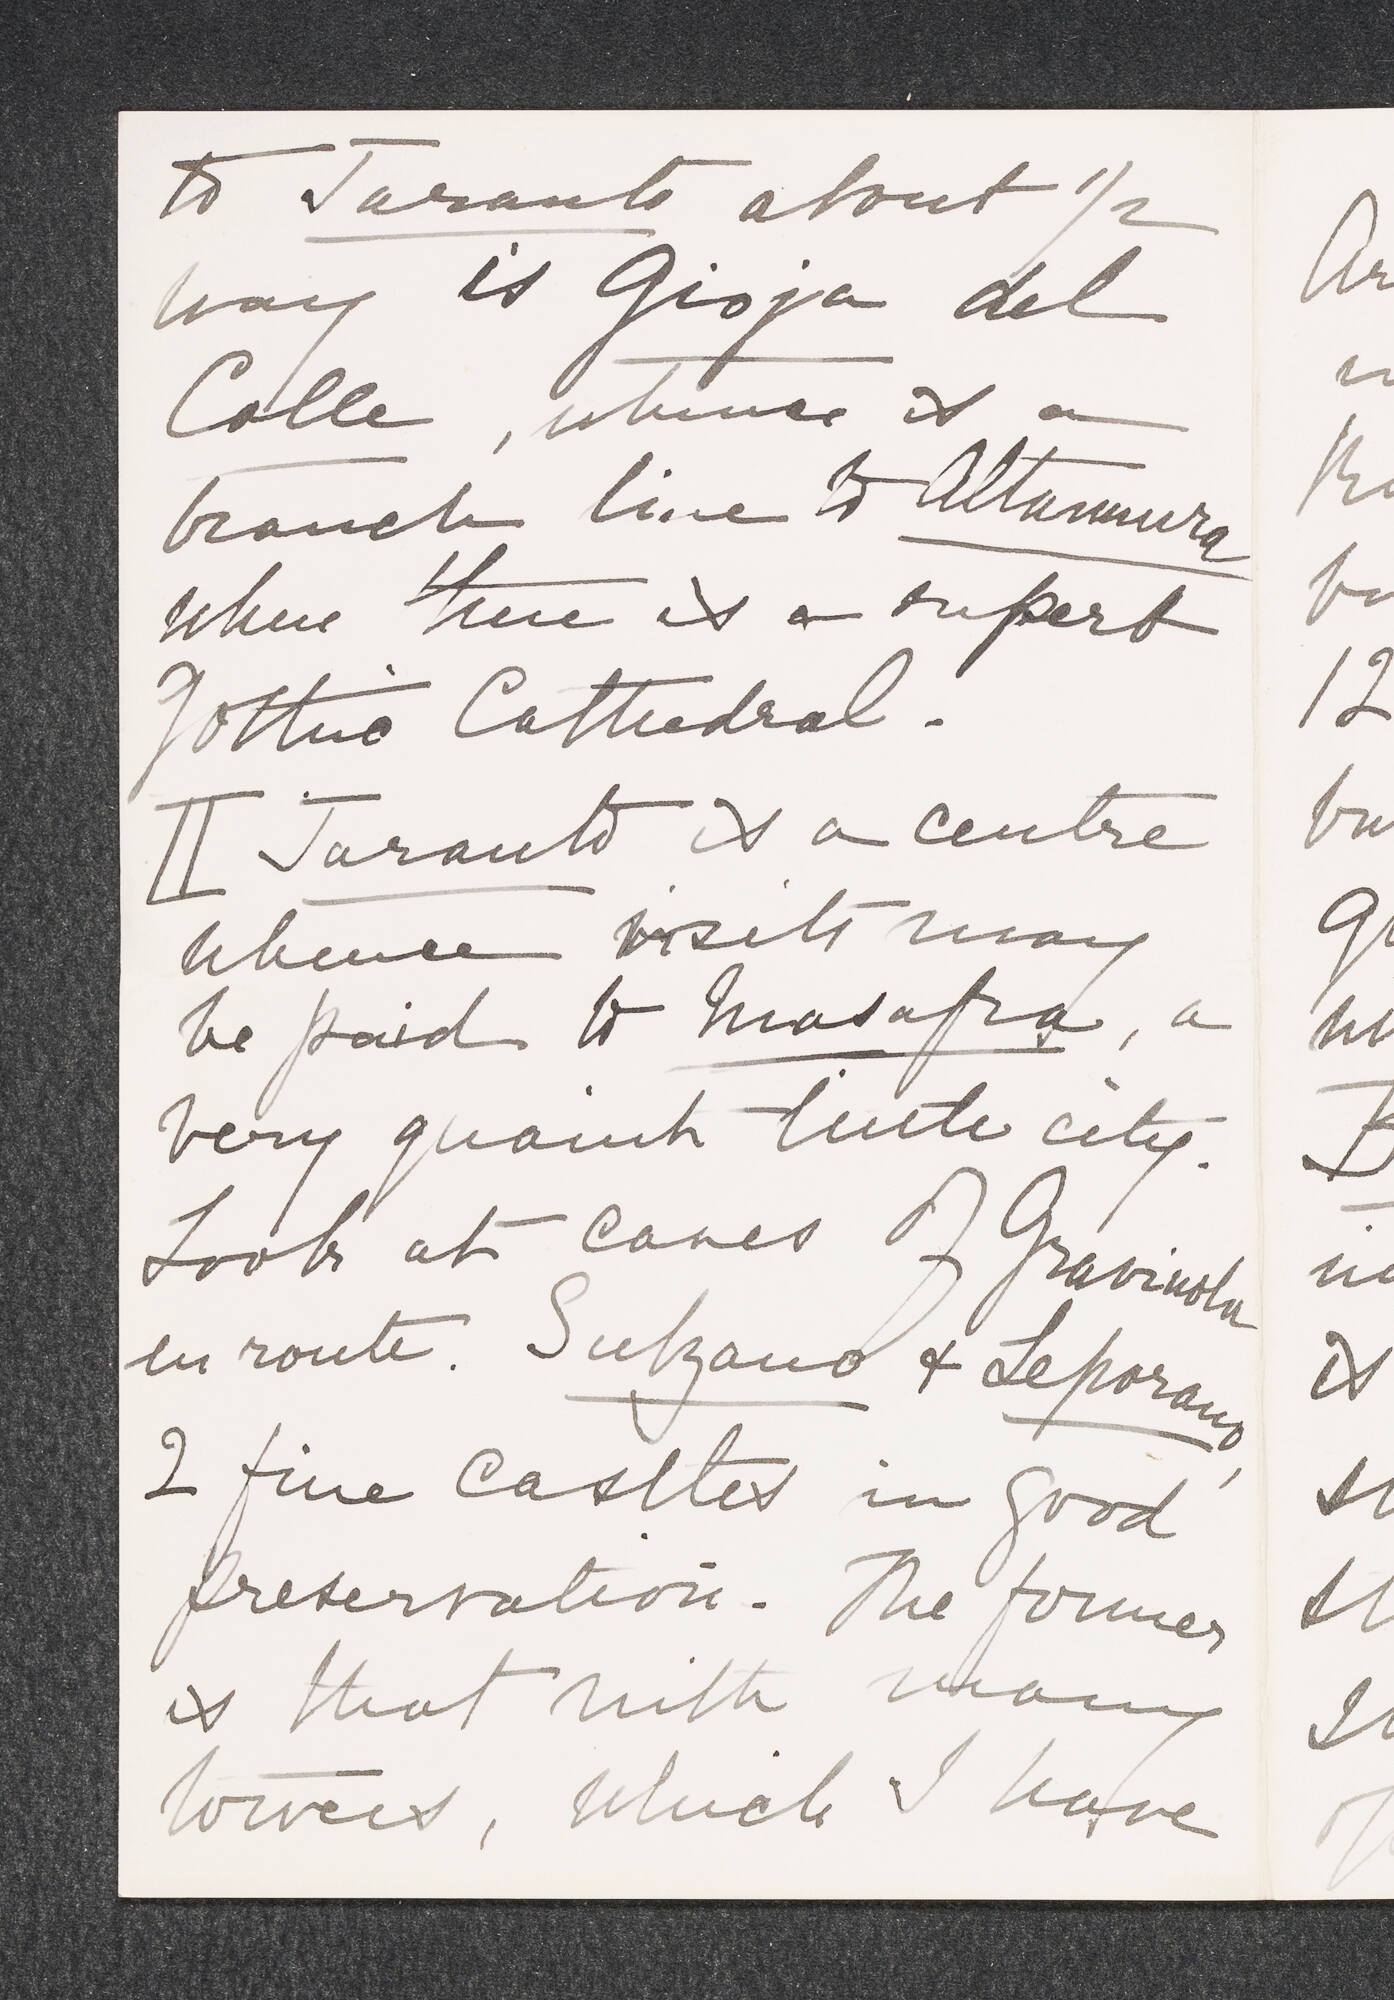 to Taranto about 1/2
way is Gioja del
Colle, whence is a
branch line to Altamura
where there is a superb
Gothic Cathedral.
II Taranto is a centre
whence visits may
be paid to Masafra, a
very quaint little city.
Look at caves of Gravinola
en route. Sulzano & Leporano,
2 fine castles in good
preservation. The former
is that with many
towers, which I have